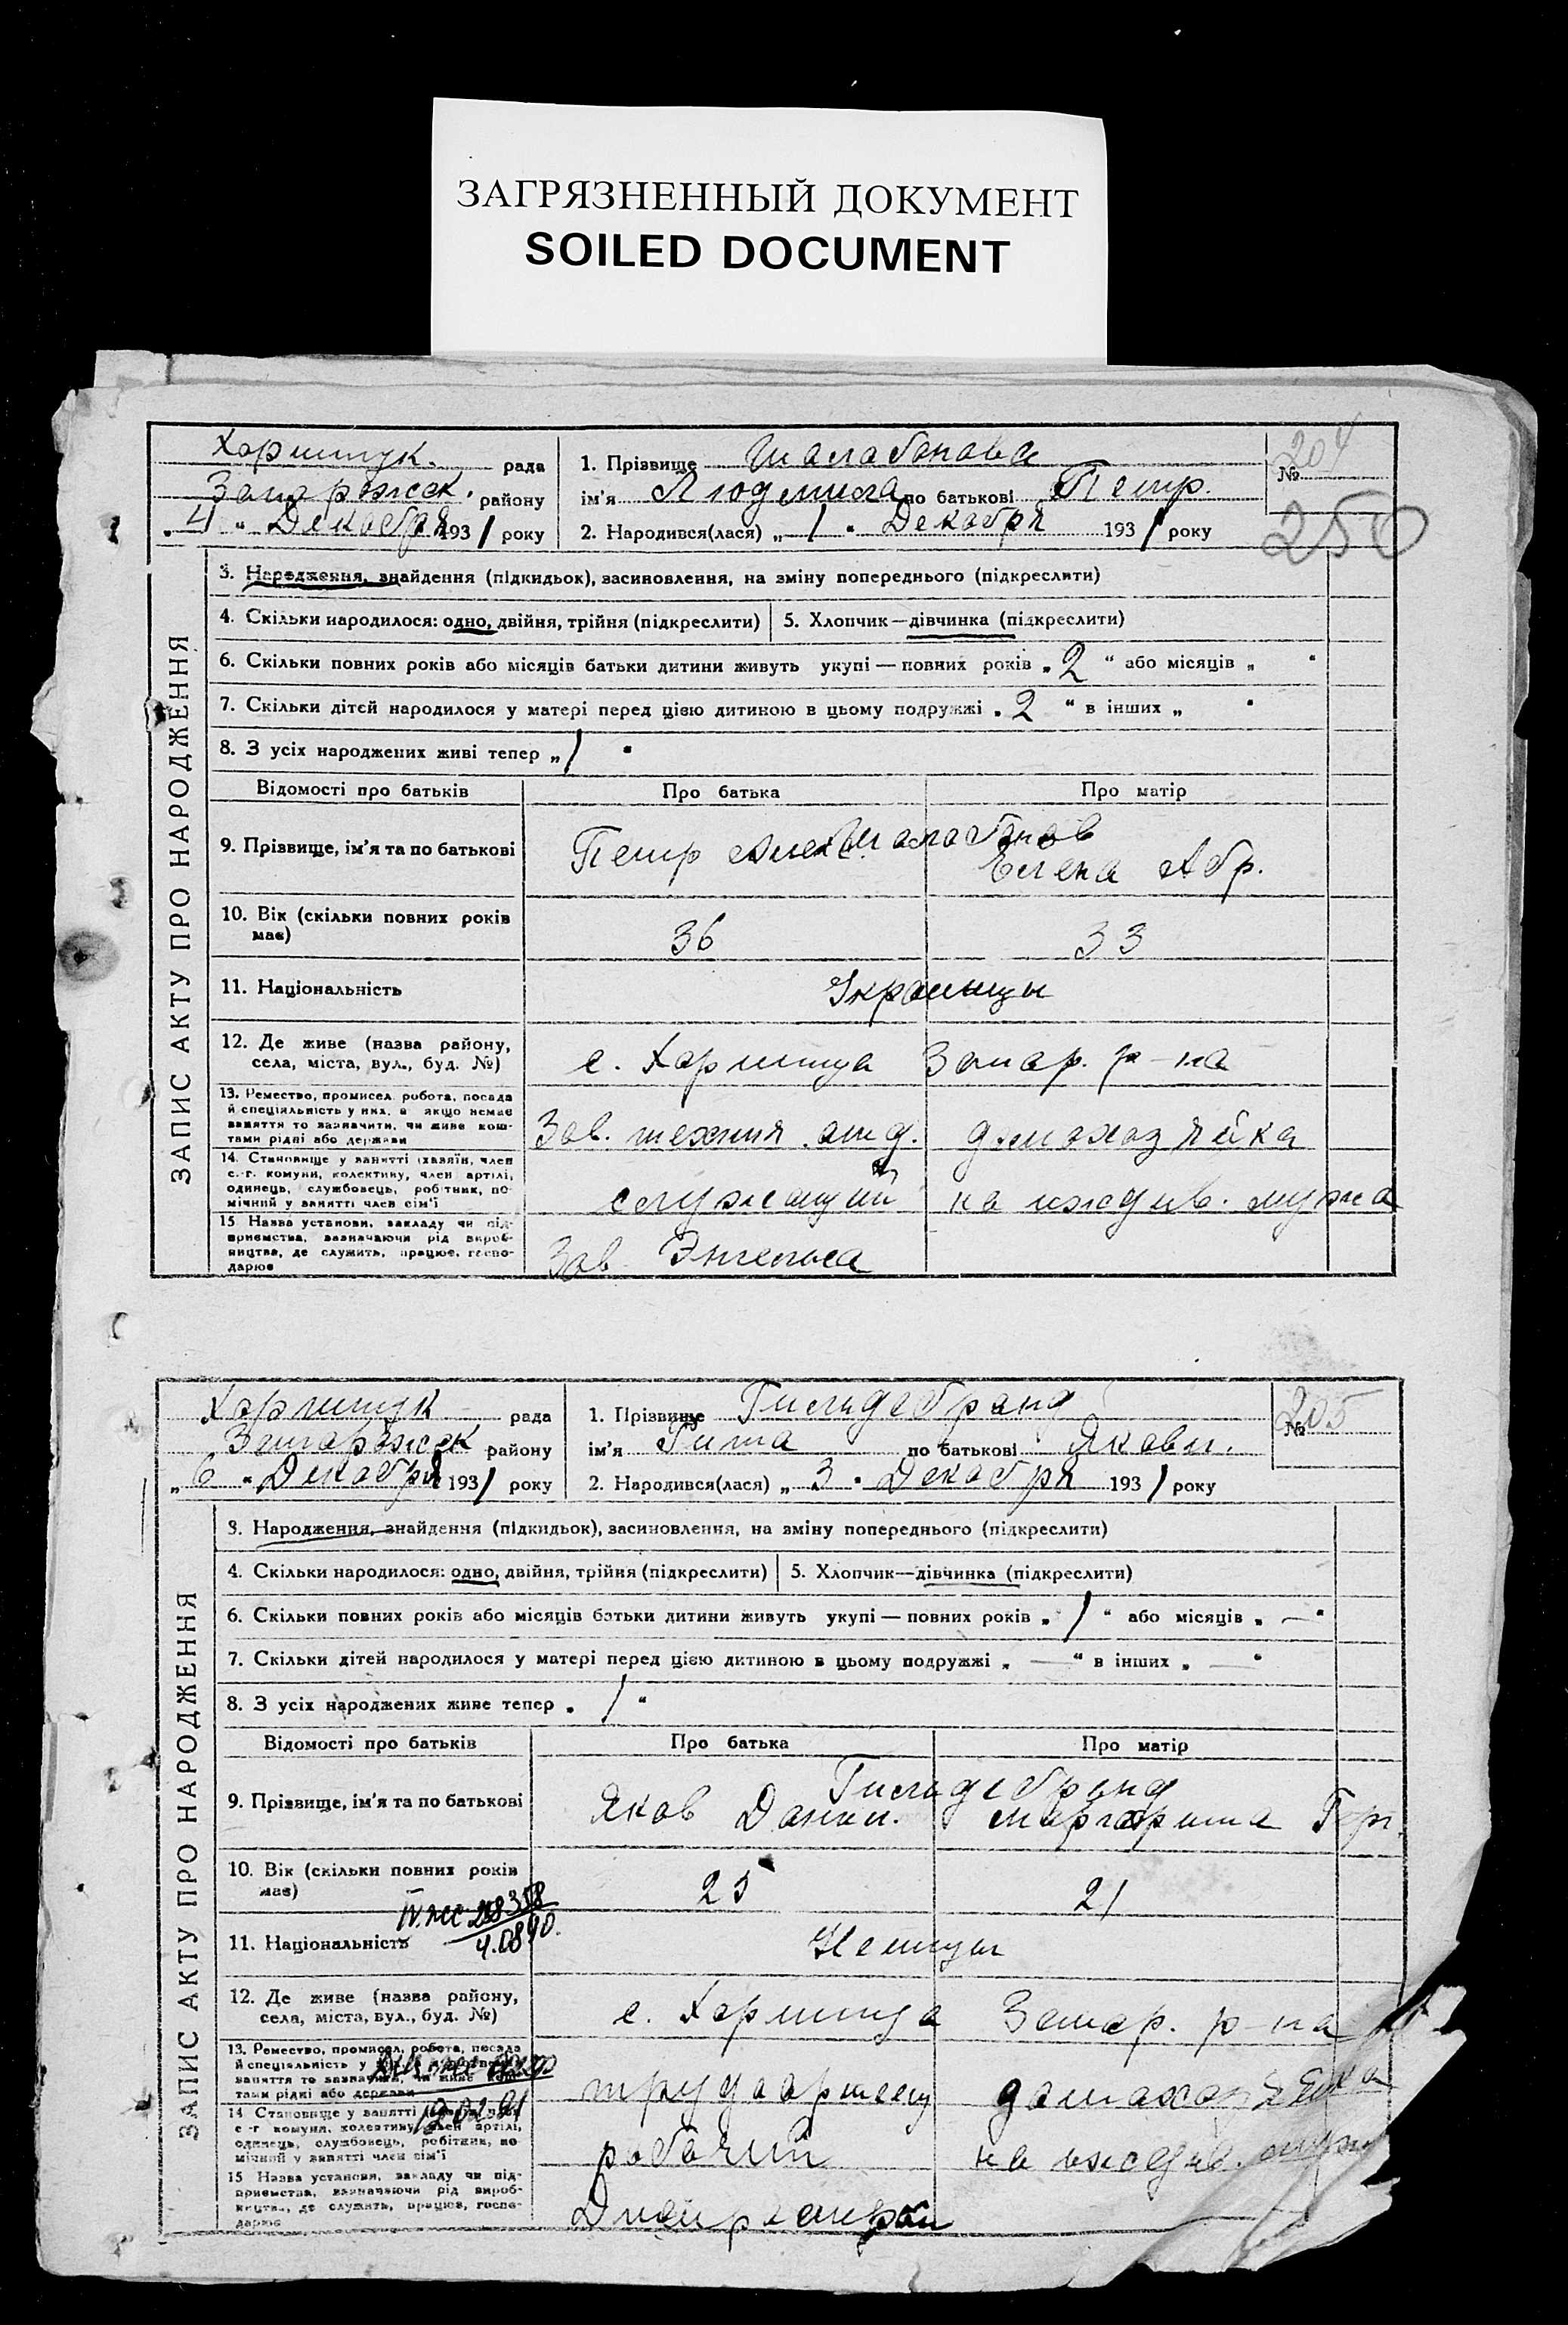 ЗАГРЯЗНЕННЫЙ ДОКУМЕНТ
SOILED DOCUMENT
ЗАПИС АКТУ ПРО НАРОДЖЕННЯ
Хортицк. рада
Запорожск. району
„4“ Декабря 1931 року
1. Прізвище Шалабанова
ім'я Людмила по батькові Петр.
2. Народився(лася) „1“ Декабря 1931 року
№ 204
250
3. Народження, знайдення (підкидьок), засиновлення, на зміну попереднього (підкреслити)
4. Скільки народилося: одно, двійня, трійня (підкреслити) 5. Хлопчик — дівчинка (підкреслити)
6. Скільки повних років або місяців батьки дитини живуть укупі — повних років „2“ або місяців „ “
7. Скільки дітей народилося у матері перед цією дитиною в цьому подружжі „2“ в інших „ “
8. З усіх народжених живі тепер „1“
Відомості про батьків Про батька Про матір
9. Прізвище, ім'я та по батькові
Шалабанов
Петр Алекс. Елена Абр.
10. Вік (скільки повних років має) 36 33
11. Національність Украинцы
12. Де живе (назва району, села, міста, вул., буд. №) с. Хортица Запор. р-на
13. Ремество, промисел, робота, посада
й спеціяльність у них, а якщо немає
заняття то зазначити, чи живе кош-
тами рідні або держави
Зав. технич. отд. домохозяйка
14. Становище у занятті (хазяїн, член
с.-г. комуни, колективу, член артілі,
одинець, службовець, робітник, по-
мічний у занятті член сім'ї
служащий на иждив. мужа
15 Назва установи, закладу чи під-
приємства, зазначаючи рід вироб-
ництва, де служить, працює, госпо-
дарює
Зав. Энгельса
ЗАПИС АКТУ ПРО НАРОДЖЕННЯ
Хортицк рада
Запорожск району
„6“ Декабря 1931 року
1. Прізвище Гильдебранд
ім'я Рита по батькові Яковл.
2. Народився(лася) „3“ Декабря 1931 року
№ 205
3. Народження, знайдення (підкидьок), засиновлення, на зміну попереднього (підкреслити)
4. Скільки народилося: одно, двійня, трійня (підкреслити) 5. Хлопчик—дівчинка (підкреслити)
6. Скільки повних років або місяців батьки дитини живуть укупі — повних років „1“ або місяців „—“
7. Скільки дітей народилося у матері перед цією дитиною в цьому подружжі „—“ в інших „—“
8. З усіх народжених живе тепер „1“
Відомості про батьків Про батька Про матір
9. Прізвище, ім'я та по батькові
Гильдебранд
Яков Данил. Маргарита Гер.
10. Вік (скільки повних років має) 25 21
11. Національність Немцы
12. Де живе (назва району, села, міста, вул., буд. №) с. Хортица Запор. р-на
13. Ремество, промисел, робота, посада
й спеціяльність у
заняття то зазначити, чи живе кош-
тами рідні або держави
трудоармеец домохозяйка
14 Становище у занятті член
с.-г комуни, колективу, член артілі,
одинець, службовець, робітник, по-
мічний у занятті член сім'ї
рабочий на иждив. мужа
15 Назва установи, закладу чи під-
приємства, зазначаючи рід вироб-
ництва, де служить, працює, госпо-
дарює